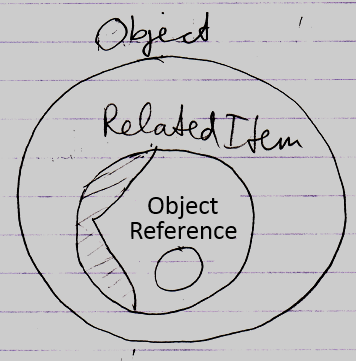 Object
RelatedItem
Object
Reference